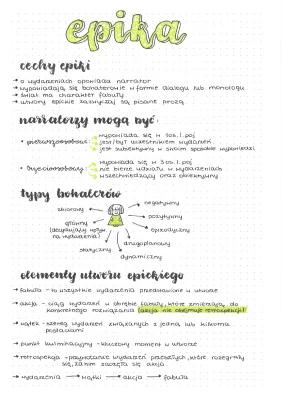 epika
cechy epiki
→ o wydarzeniach opowiada narrator
→ wypowiadają się bohaterowie w formie dialogu lub monologu
→ świat ma charakter fabuły
→ utwory epickie zazwyczaj są pisane prozą
narratorzy mogą być:
• pierwszoosobowi:
wypowiada się w 1 os. l. poj
jest/był uczestnikiem wydarzeń
jest subiektywny w swoim sposobie wypowiedzi
• trzecioosobowi:
wypowiada się w 3 os. l. poj
nie bierze udziału w wydarzeniach
wszechwiedzący oraz obiektywny
typy bohaterów
negatywny
zbiorowy
pozytywny
główny
(decydujący wpływ
na wydarzenia)
epizodyczny
drugoplanowy
statyczny
dynamiczny
elementy utworu epickiego
→ fabuła - to wszystkie wydarzenia przedstawione w utworze
→ akcja - ciąg wydarzeń w obrębie fabuły, które zmierzają do
konkretnego rozwiązania (akcja nie obejmuje retrospekcji)
→ wątek - szereg wydarzeń związanych z jedną lub kilkoma
postaciami
→ punkt kulminacyjny - kluczowy moment w utworze
→ retrospekcja - przywołanie wydarzeń przeszłych, które rozegrały
się, zanim zaczęła się akcja
→ wydarzenia → wątki → akcja → fabuła